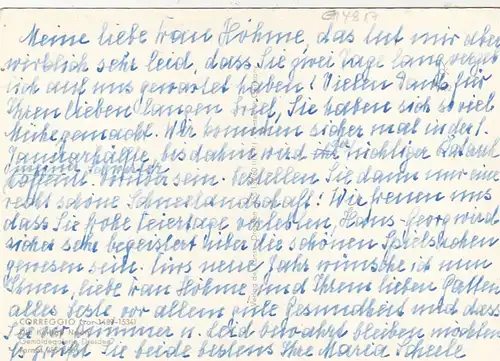 G 4817
Meine liebe Frau Höhme, das tut mir aber
wirklich sehr leid, dass Sie zwei Tage lang vergeb
lich auf uns gewartet haben! Vielen Dank für
Ihren lieben langen Brief, Sie haben sich so viel
Mühe gemacht. Wir kommen sicher mal in der 1.
Januarhälfte, bis dahin wird
hoffentl. vorüber sein. Bestellen Sie dann nur eine
recht schöne Schneelandschaft! Wir freuen uns
dass Sie frohe Feiertage verlebten, Hans-Georg wird
sicher sehr begeistert über die schönen Spielsachen
gewesen sein. Fürs neue Jahr wünsche ich nun
Ihnen, liebe Frau Höhme und Ihrem lieben Gatten
alles beste, vor allem viele Gesundheit und dass
Sie vor Kummer u. Leid bewahrt bleiben möchten
Sie beide bestens Ihre Maria Scheele
CORREGGIO (um 1489-1534)
Gemäldegalerie Dresden